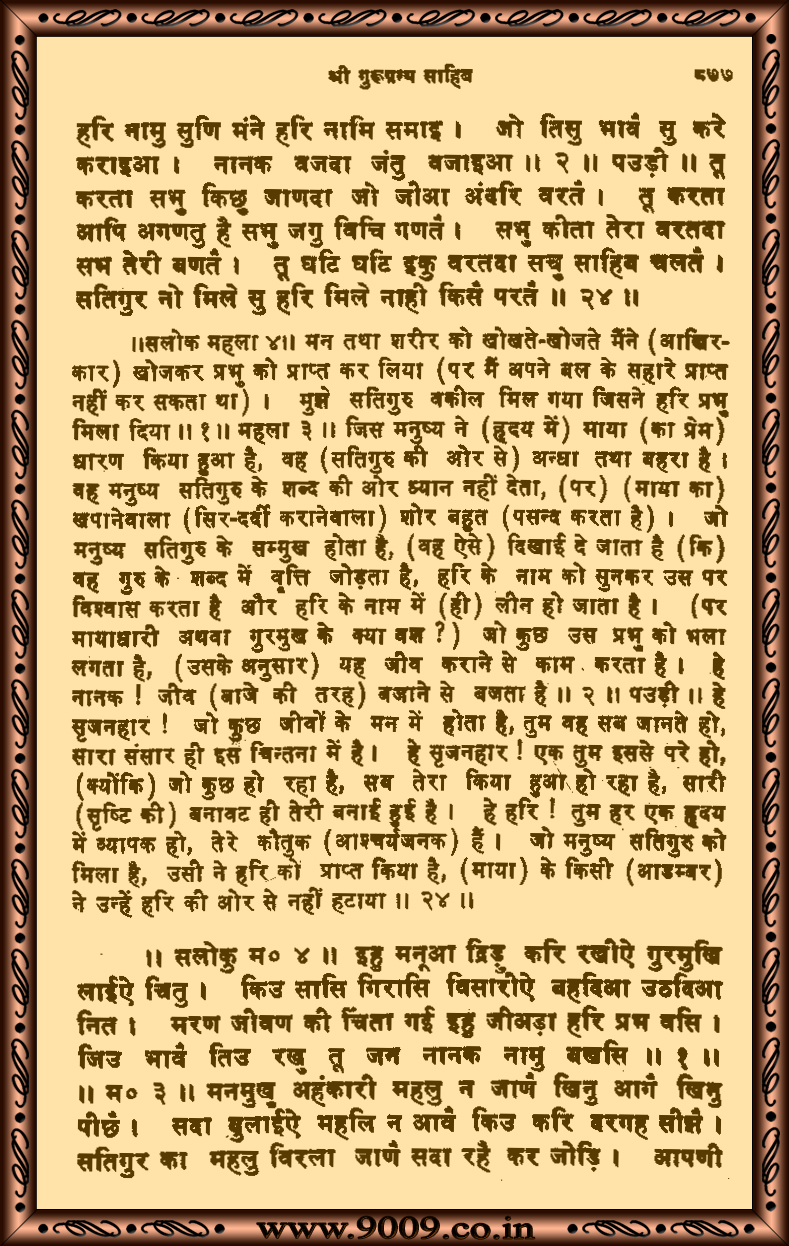 श्री गुरूग्रन्थ साहिब ८७७
हरि नामु सुणि मंने हरि नामि समाइ । जो तिसु भावै सु करे
कराइआ । नानक वजदा जंतु वजाइआ ॥ २ ॥ पउड़ी ॥ तू
करता सभु किछु जाणदा जो जीआ अंदरि वरतै । तू करता
आपि अगणतु है सभु जगु विचि गणतै । सभु कीता तेरा वरतदा
सभ तेरी बणतै । तू घटि घटि इकु वरतदा सचु साहिब चलतै ।
सतिगुर नो मिले सु हरि मिले नाही किसै परतै ॥ २४ ॥
॥सलोक महला ४॥ मन तथा शरीर को खोखते-खोजते मैंने (आखिर-
कार) खोजकर प्रभु को प्राप्त कर लिया (पर मैं अपने बल के सहारे प्राप्त
नहीं कर सकता था) । मुझे सतिगुरु वकील मिल गया जिसने हरि प्रभु
मिला दिया ॥ १ ॥ महला ३ ॥ जिस मनुष्य ने (हृदय में) माया (का प्रेम)
धारण किया हुआ है, वह (सतिगुरु की ओर से) अन्धा तथा बहरा है ।
वह मनुष्य सतिगुरु के शब्द की ओर ध्यान नहीं देता, (पर) (माया का)
खपानेवाला (सिर-दर्दी करानेवाला) शोर बहुत (पसन्द करता है) । जो
मनुष्य सतिगुरु के सम्मुख होता है, (वह ऐसे) दिखाई दे जाता है (कि)
वह गुरु के शब्द में वृत्ति जोड़ता है, हरि के नाम को सुनकर उस पर
विश्वास करता है और हरि के नाम में (ही) लीन हो जाता है । (पर
मायाधारी अथवा गुरमुख के क्या वश ?) जो कुछ उस प्रभु को भला
लगता है, (उसके अनुसार) यह जीव कराने से काम करता है । हे
नानक ! जीव (बाजे की तरह) बजाने से बजता है ॥ २ ॥ पउड़ी ॥ हे
सृजनहार ! जो कुछ जीवों के मन में होता है, तुम वह सब जानते हो,
सारा संसार ही इस चिन्तना में है । हे सृजनहार ! एक तुम इससे परे हो,
(क्योंकि) जो कुछ हो रहा है, सब तेरा किया हुआ हो रहा है, सारी
(सृष्टि की) बनावट ही तेरी बनाई हुई है । हे हरि ! तुम हर एक हृदय
में व्यापक हो, तेरे कौतुक (आश्चर्यजनक) हैं । जो मनुष्य सतिगुरु को
मिला है, उसी ने हरि को प्राप्त किया है, (माया) के किसी (आडम्बर)
ने उन्हें हरि की ओर से नहीं हटाया ॥ २४ ॥
॥ सलोकु म० ४ ॥ इहु मनूआ द्रिड़ु करि रखीऐ गुरमुखि
लाईऐ चितु । किउ सासि गिरासि विसारीऐ बहदिआ उठदिआ
नित । मरण जीवण की चिंता गई इहु जीअड़ा हरि प्रभ वसि ।
जिउ भावै तिउ रखु तू जन नानक नामु बखसि ॥ १ ॥
॥ म० ३ ॥ मनमुखु अहंकारी महलु न जाणै खिनु आगै खिनु
पीछै । सदा बुलाईऐ महलि न आवै किउ करि दरगह सीझै ।
सतिगुर का महलु विरला जाणै सदा रहै कर जोड़ि । आपणी
www.9009.co.in